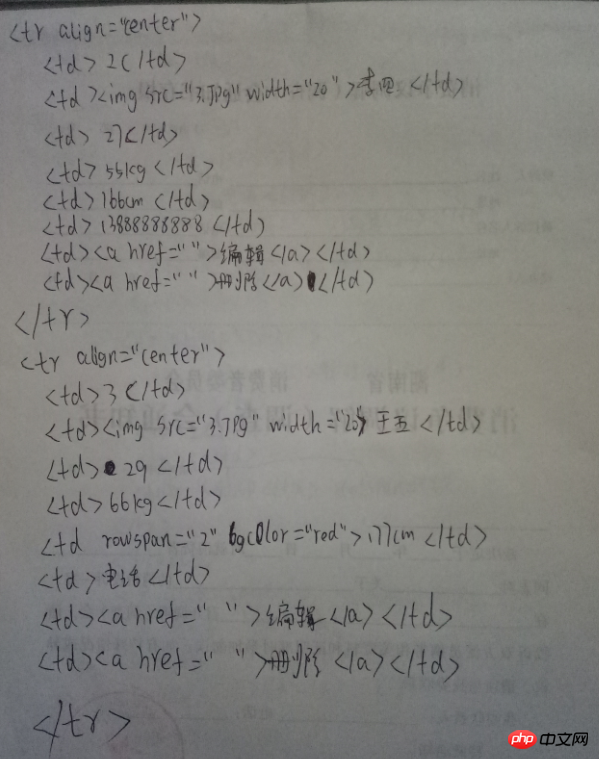 <tr align="center">
<td>2</td>
<td><img src="3.jpg" width="20">李四</td>
<td>27</td>
<td>55kg</td>
<td>166cm</td>
<td>13888888888</td>
<td><a href=" ">编辑</a></td>
<td><a href=" ">删除</a></td>
</tr>
<tr align="center">
<td>3</td>
<td><img src="3.JPg" width="20">王五</td>
<td>29</td>
<td>66kg</td>
<td rowspan="2" bgcolor="red">177cm</td>
<td>电话</td>
<td><a href=" ">编辑</a></td>
<td><a href=" ">删除</a></td>
</tr>
php中文网